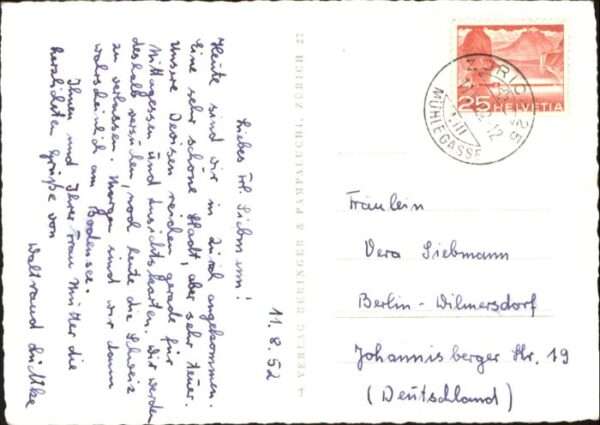 11.8.52
Liebes Frl. Siebmann!
Heute sind wir in Zürich angekommen.
Eine sehr schöne Stadt, aber sehr teuer.
Unsere Devisen reichen gerade für
Mittagessen und Ansichtskarten. Wir werden
deshalb wohl noch heute die Schweiz
zu verlassen. Morgen sind wir dann
wahrscheinlich am Bodensee.
Ihnen und Ihrer Frau Mutter die
herzlichsten Grüße von
Waltraud Lüttke
VERLAG BERINGER & PAMPALUCHI, ZÜRICH 22
25 HELVETIA
25
12
MÜHLEGASSE
Fräulein
Vera Siebmann
Berlin-Wilmersdorf
Johannisberger Str. 19
(Deutschland)